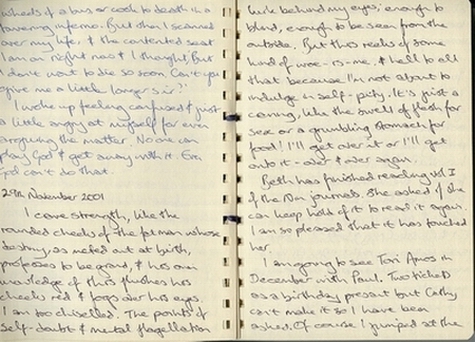 wheels of a bus or cook to death in a
towering inferno. But then I scanned
over my life, & the contented seat
I am on right now & I thought But
I don't want to die so soon. Can't you
give me a little longer sir?'
I woke up feeling confused & just
a little angry at myself for even
arguing the matter. No one can
play God & get away with it. Even
God can't do that.
29th November 2001
I crave strength, like the
rounded cheeks of the fat man whose
destiny, as meted out at birth,
professes to be grand, & his own
knowledge of this flushes his
cheeks red & fogs over his eyes.
I am too chiselled. The points of
self-doubt & mental flagellation
lurk behind my eyes, enough to
blind, enough to be seen from the
outside. But this reeks of some
kind of woe-is-me, & hell to all
that because I'm not about to
indulge in self-pity. It's just a
craving, like the swell of flesh for
sex or a grumbling stomach for
food! I'll get over it or I'll get
onto it - over & over again.
Beth has finished reading vol I
of the Nin journals. She asked if she
can keep hold of it to read it again.
I am so pleased that it has touched
her.
I am going to see Tori Amos in
December with Paul. Two tickets
as a birthday present but Cathy
can't make it so I have been
asked. Of course I jumped at the